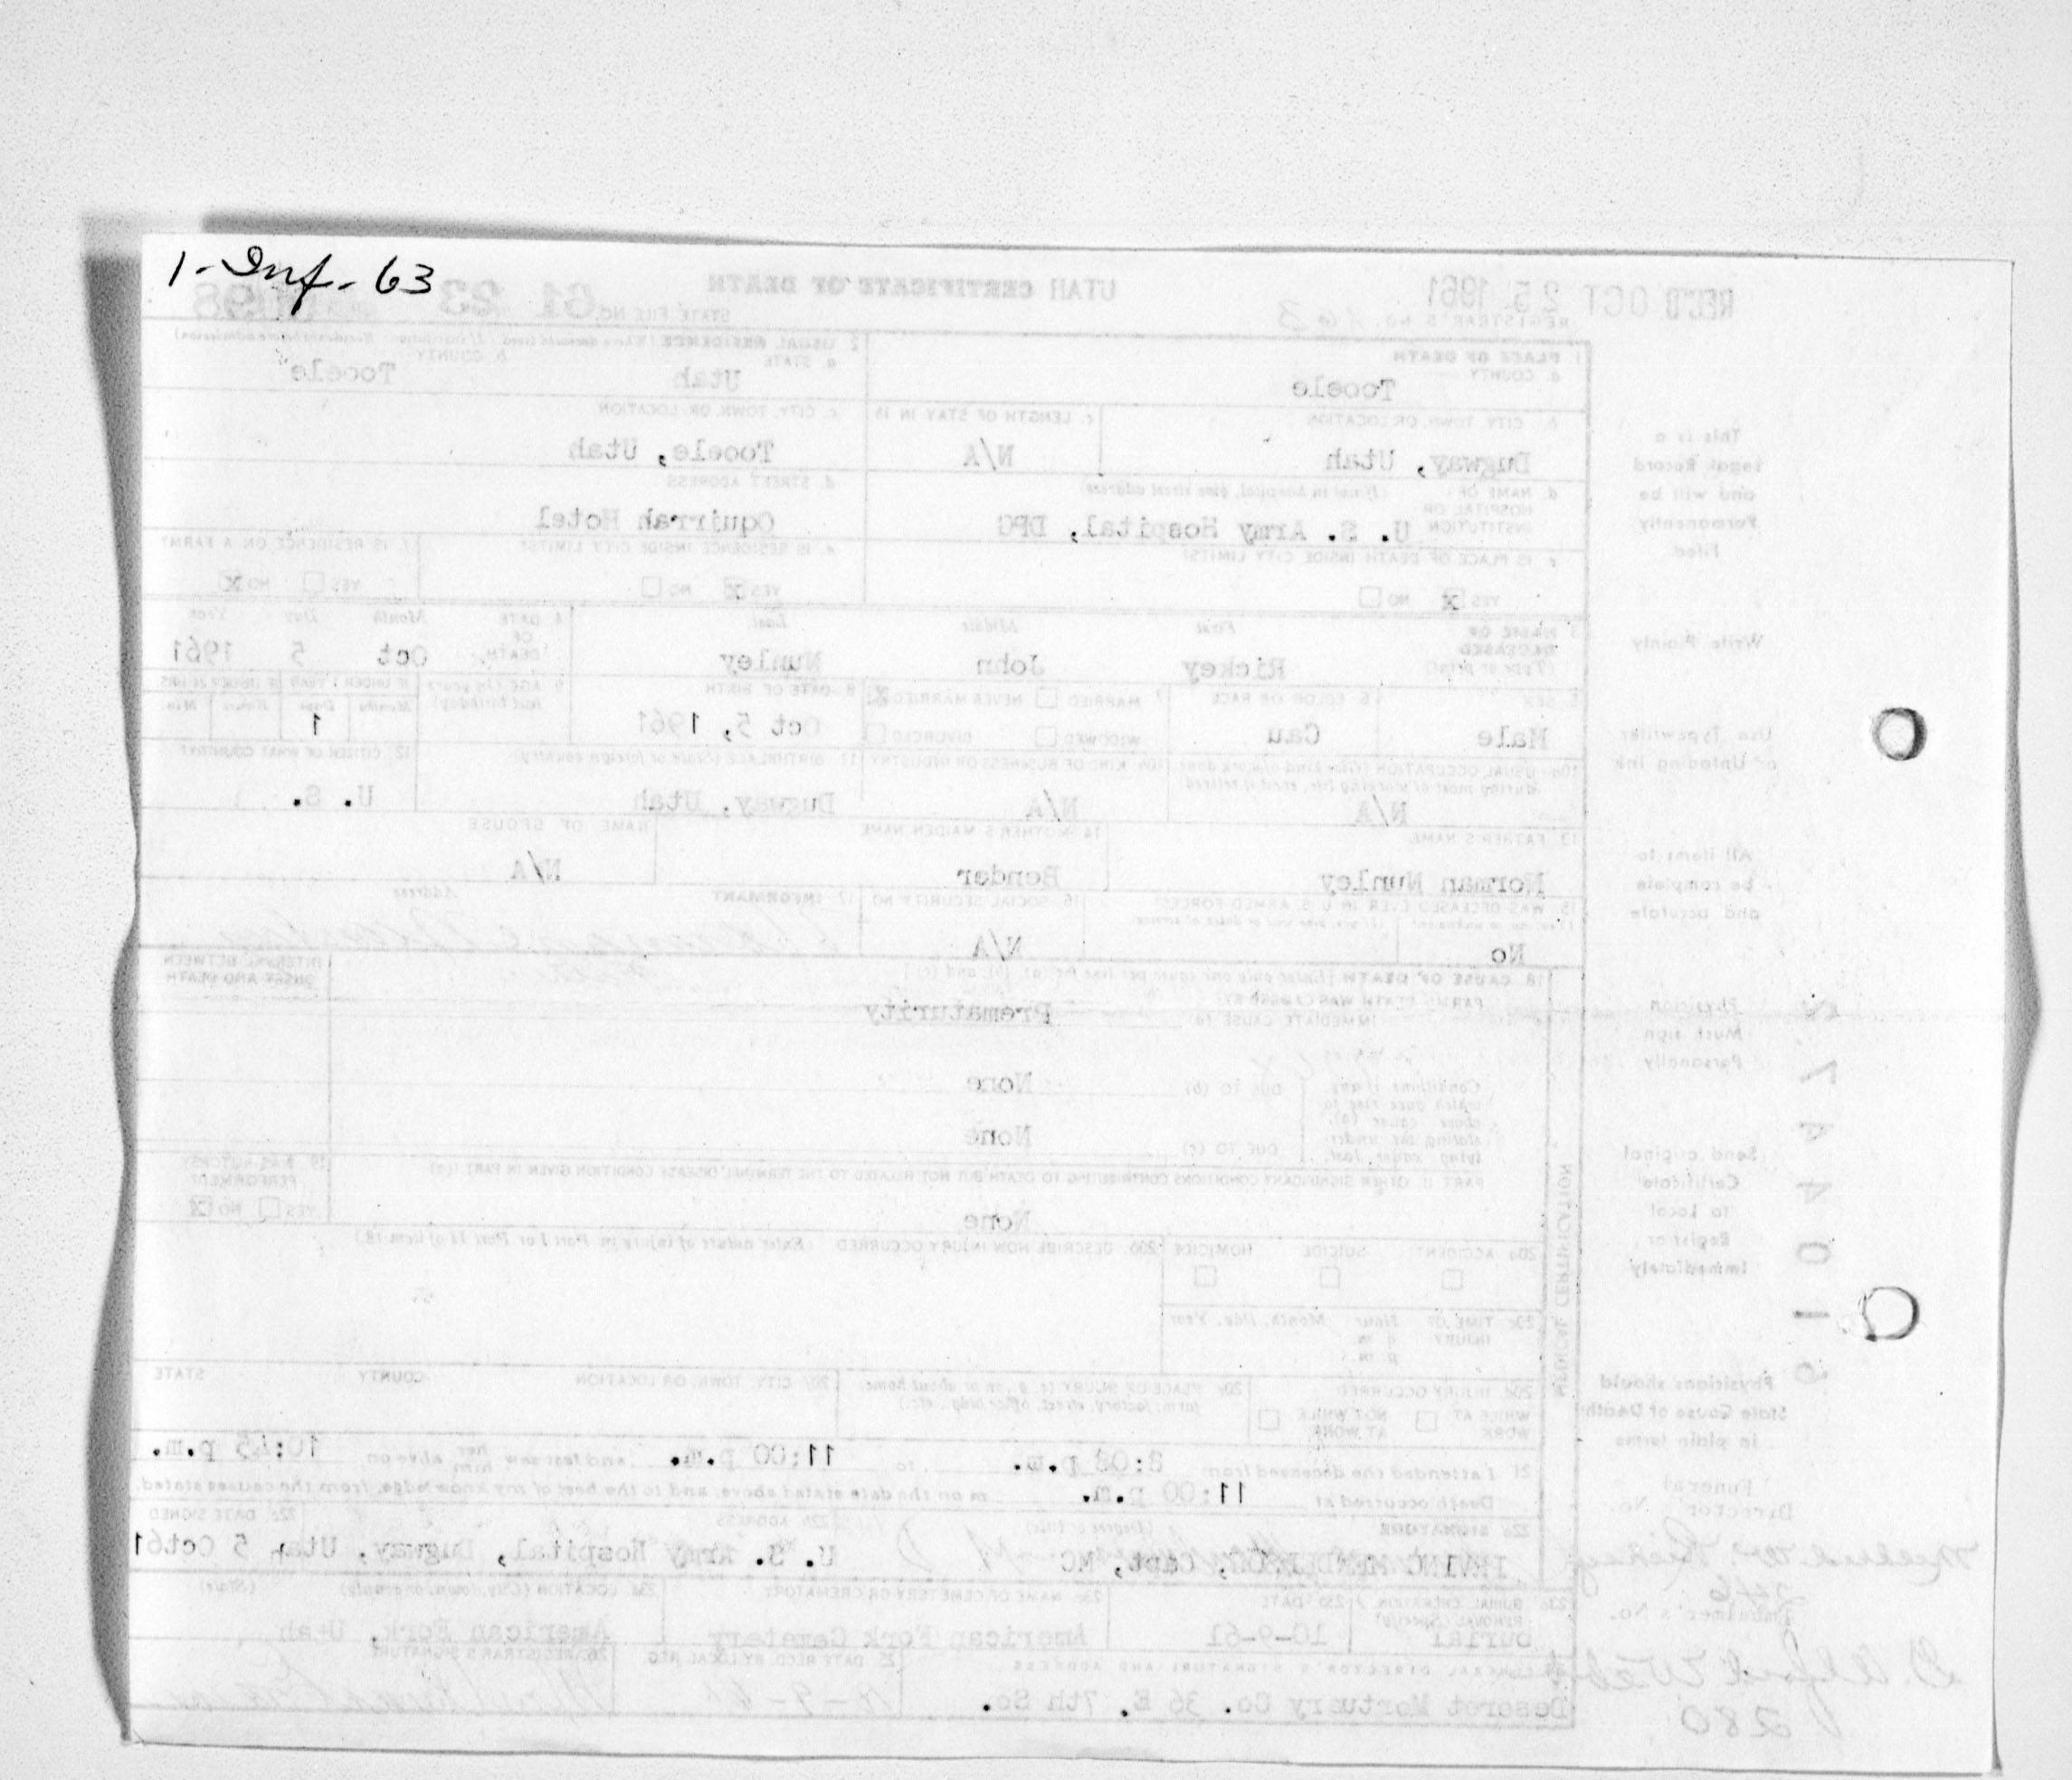 1-Inf-63
REC'D OCT 25 1961
UTAH CERTIFICATE OF DEATH
REGISTRAR'S NO. 163
STATE FILE NO. 61 23
1 PLACE OF DEATH
a. COUNTY
Tooele
2 USUAL RESIDENCE (Where deceased lived. If institution: Residence before admission)
a. STATE
Utah
b. COUNTY
Tooele
b. CITY, TOWN, OR LOCATION
Dugway, Utah
c. LENGTH OF STAY IN 1b
N/A
c. CITY, TOWN, OR LOCATION
Tooele, Utah
d. NAME OF HOSPITAL OR INSTITUTION (If not in hospital, give street address)
U. S. Army Hospital, DPG
d. STREET ADDRESS
Oquirrah Hotel
e. IS PLACE OF DEATH INSIDE CITY LIMITS?
YES X NO
e. IS RESIDENCE INSIDE CITY LIMITS?
YES X NO
f. IS RESIDENCE ON A FARM?
YES NO X
3 NAME OF DECEASED (Type or print)
First Middle Last
Rickey John Nunley
4 DATE OF DEATH
Month Day Year
Oct 5 1961
5. SEX
Male
6 COLOR OR RACE
Cau
7 MARRIED NEVER MARRIED X
WIDOWED DIVORCED
8 DATE OF BIRTH
Oct 5, 1961
9 AGE (In years last birthday)
IF UNDER 1 YEAR IF UNDER 24 HRS.
Months Days Hours Min.
1
10a USUAL OCCUPATION (Give kind of work done during most of working life, even if retired)
N/A
10b KIND OF BUSINESS OR INDUSTRY
N/A
11 BIRTHPLACE (State or foreign country)
Dugway, Utah
12 CITIZEN OF WHAT COUNTRY?
U. S.
13 FATHER'S NAME
Norman Nunley
14 MOTHER'S MAIDEN NAME
Bender
NAME OF SPOUSE
N/A
15 WAS DECEASED EVER IN U.S. ARMED FORCES?
No
16 SOCIAL SECURITY NO.
N/A
17 INFORMANT Address
18 CAUSE OF DEATH [Enter only one cause per line for (a), (b), and (c).]
INTERVAL BETWEEN ONSET AND DEATH
PART I DEATH WAS CAUSED BY:
IMMEDIATE CAUSE (a)
Prematurity
Conditions, if any, which gave rise to above cause (a), stating the underlying cause last.
DUE TO (b)
None
DUE TO (c)
None
PART II OTHER SIGNIFICANT CONDITIONS CONTRIBUTING TO DEATH BUT NOT RELATED TO THE TERMINAL DISEASE CONDITION GIVEN IN PART I (a)
None
19. WAS AUTOPSY PERFORMED?
YES NO X
MEDICAL CERTIFICATION
20a ACCIDENT SUICIDE HOMICIDE
20b. DESCRIBE HOW INJURY OCCURRED (Enter nature of injury in Part I or Part II of item 18)
20c TIME OF INJURY Hour Month, Day, Year
a.m.
p.m.
20d. INJURY OCCURRED
WHILE AT WORK NOT WHILE AT WORK
20e PLACE OF INJURY (e.g., in or about home, farm, factory, street, office bldg., etc.)
20f CITY, TOWN, OR LOCATION COUNTY STATE
21 I attended the deceased from 8:08 p.m. to 11:00 p.m. and last saw her him alive on 10:45 p.m.
Death occurred at 11:00 p.m. m on the date stated above; and to the best of my knowledge, from the causes stated.
22a SIGNATURE (Degree or title)
22b ADDRESS
22c DATE SIGNED
Capt, MC
U. S. Army Hospital, Dugway, Utah 5 Oct61
23a BURIAL, CREMATION, REMOVAL (Specify)
Burial
23b DATE
10-9-61
23c NAME OF CEMETERY OR CREMATORY
American Fork Cemetery
23d LOCATION (City, town, or county) (State)
American Fork, Utah
24 FUNERAL DIRECTOR'S SIGNATURE AND ADDRESS
Deseret Mortuary Co. 36 E. 7th So.
25 DATE RECD. BY LOCAL REG.
26. REGISTRAR'S SIGNATURE
This is a Legal Record and will be Permanently Filed
Write Plainly
Use Typewriter or Unfading Ink
All items to be complete and accurate
Physician Must sign Personally
Send original Certificate to Local Registrar Immediately
Physicians should state Cause of Death in plain terms
Funeral Director No.
246
Embalmer's No.
280